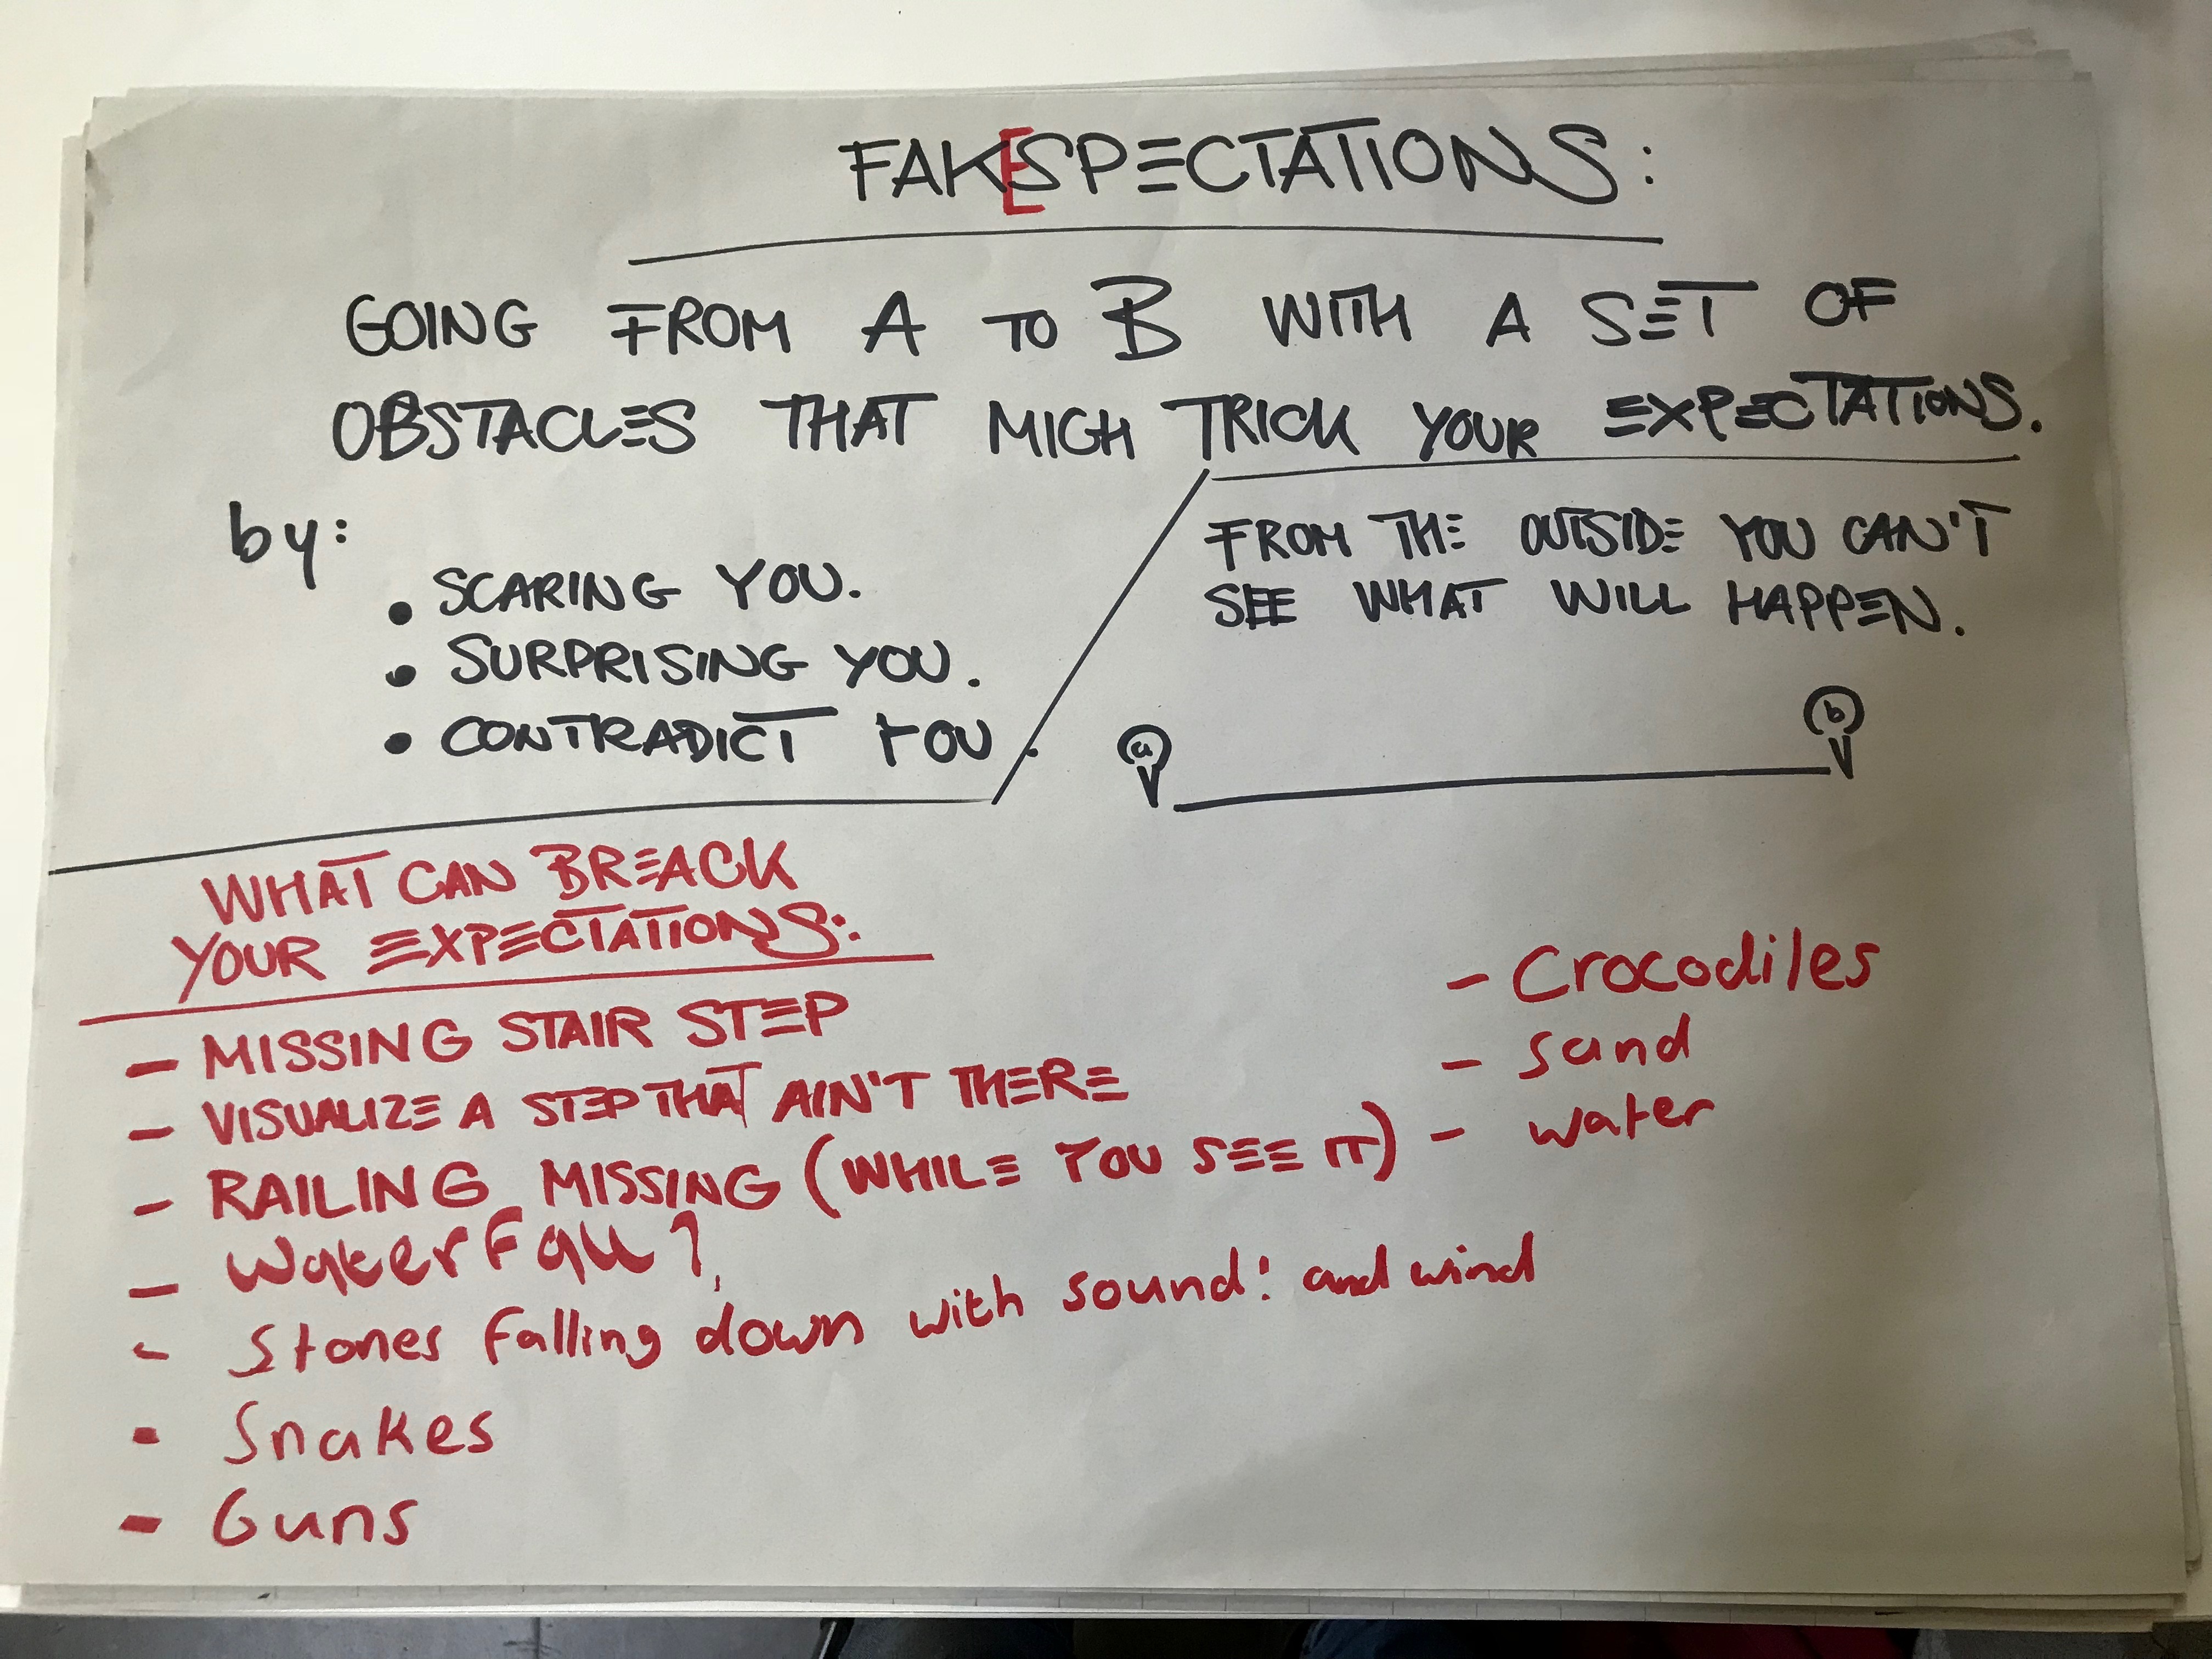 FAKESPECTATIONS:
GOING FROM A TO B WITH A SET OF
OBSTACLES THAT MIGH TRICK YOUR EXPECTATIONS.
by:
• SCARING YOU.
• SURPRISING YOU.
• CONTRADICT YOU.
FROM THE OUTSIDE YOU CAN'T
SEE WHAT WILL HAPPEN.
a
b
WHAT CAN BREACK
YOUR EXPECTATIONS:
- MISSING STAIR STEP
- VISUALIZE A STEP THAT AIN'T THERE
- RAILING MISSING (WHILE YOU SEE IT)
- Waterfall?
- Stones falling down with sound! and wind
- Snakes
- Guns
- Crocodiles
- sand
- water